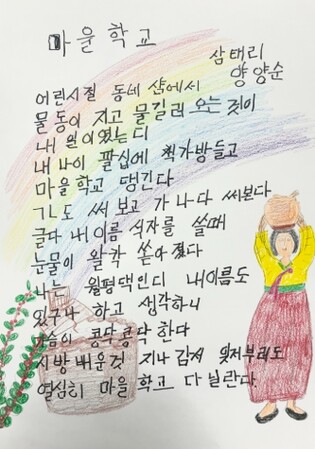 마을학교
삼태리
양양순
어린시절 동네 샴에서
물동이 지고 물길러 오는 것이
내 일이였는디
내 나이 팔십에 책가방들고
마을학교 댕긴다
ㄱㄴ도 써 보고 가 나 다 써본다
글다 내이름 석자를 쓸때
눈물이 왈칵 쏟아졌다
나는 월평댁인디 내이름도
있구나 하고 생각하니
가슴이 콩닥콩닥 한다
시방 배운것 지나감서 잊저부러도
열심히 마을 학교 다닐란다